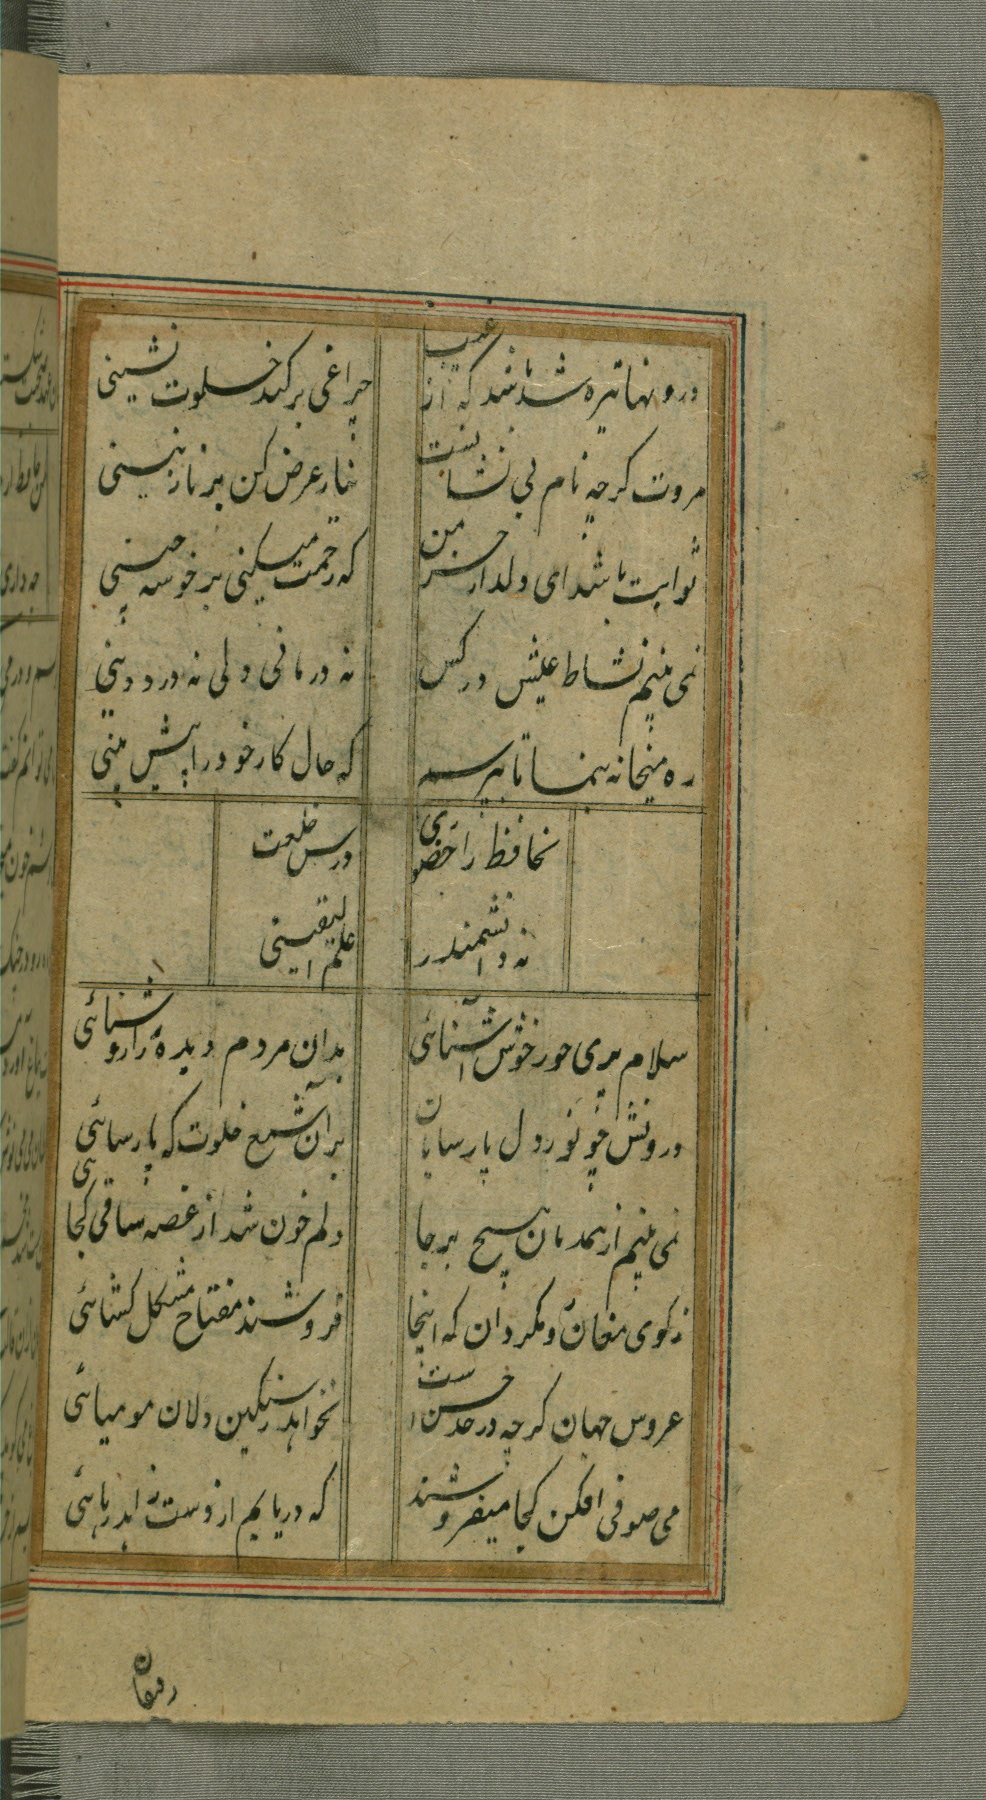 درونها تیره شد باشد که از غیب
چراغی برکند خلوت نشینی
مروت کرچه نام بی نشانست
نیاز عرض کن بر نازنینی
ثوابت باشد ای دلدار خرمن
که رحمت میکنی بر خوشه چینی
نمی بینم نشاط عیش در کس
نه درمانی ولی نه درد دینی
ره میخانه بنما تا بپرسم
که حال کار خود را پیش بینی
نحافظ را حضوری
درس خلعت
نه دانشمند را
علم الیقینی
سلامی بری چو خوش آشنائی
بدان مردم دیده را روشنائی
درودش چو نور دل پارسایان
بران شمع خلوت که پارسائی
نمی بینم از همدمان هیچ برجا
دلم خون شد از غصه ساقی کجائی
زکوی مغان رو مکردان که اینجا
فروشند مفتاح مشکل کشائی
عروس جهان کرچه در حد حسن است
نخواهد زسنکین دلان مومیائی
می صوفی افکن کجا میفروشند
که دریابم از دست زاهد رهائی
رفیقان